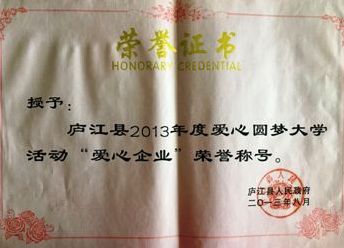 荣誉证书
HONORARY CREDENTIAL
授予：
庐江县2013年度爱心圆梦大学
活动“爱心企业”荣誉称号。
庐江县人民政府
二〇一三年八月